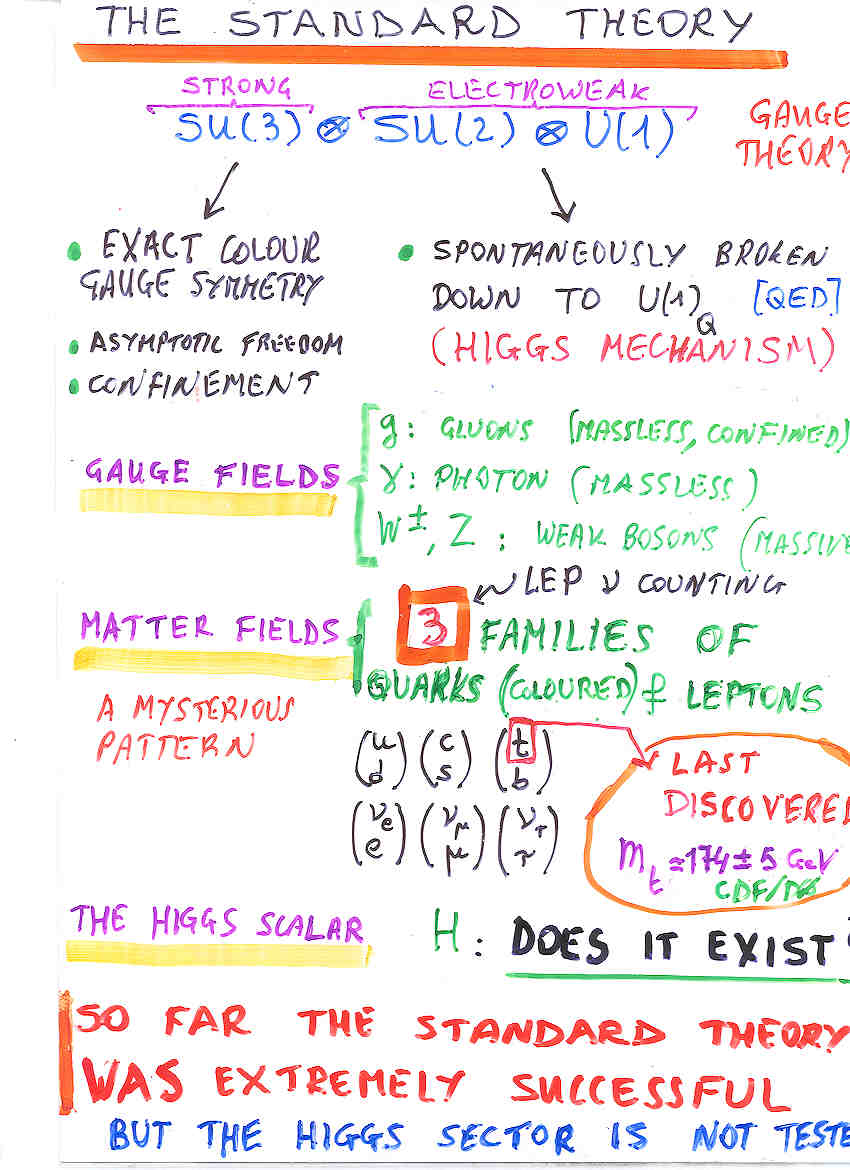 THE STANDARD THEORY
STRONG ELECTROWEAK
SU(3) ⊗ SU(2) ⊗ U(1)
GAUGE
THEORY
• EXACT COLOUR
GAUGE SYMMETRY
• ASYMPTOTIC FREEDOM
• CONFINEMENT
• SPONTANEOUSLY BROKEN
DOWN TO U(1)Q [QED]
(HIGGS MECHANISM)
GAUGE FIELDS
g: GLUONS (MASSLESS, CONFINED)
γ: PHOTON (MASSLESS)
W±, Z : WEAK BOSONS (MASSIVE
LEP ν COUNTING
MATTER FIELDS
3 FAMILIES OF
QUARKS (COLOURED) & LEPTONS
A MYSTERIOUS
PATTERN
(u d) (c s) (t b)
(νe e) (νμ μ) (ντ τ)
LAST
DISCOVERED
mt ≃ 174 ± 5 GeV
CDF/D0
THE HIGGS SCALAR
H: DOES IT EXIST?
SO FAR THE STANDARD THEORY
WAS EXTREMELY SUCCESSFUL
BUT THE HIGGS SECTOR IS NOT TESTE